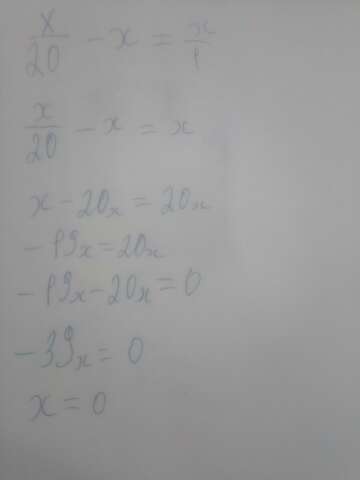 x/20 - x = x/1
x/20 - x = x
x - 20x = 20x
- 19x = 20x
- 19x - 20x = 0
- 39x = 0
x = 0